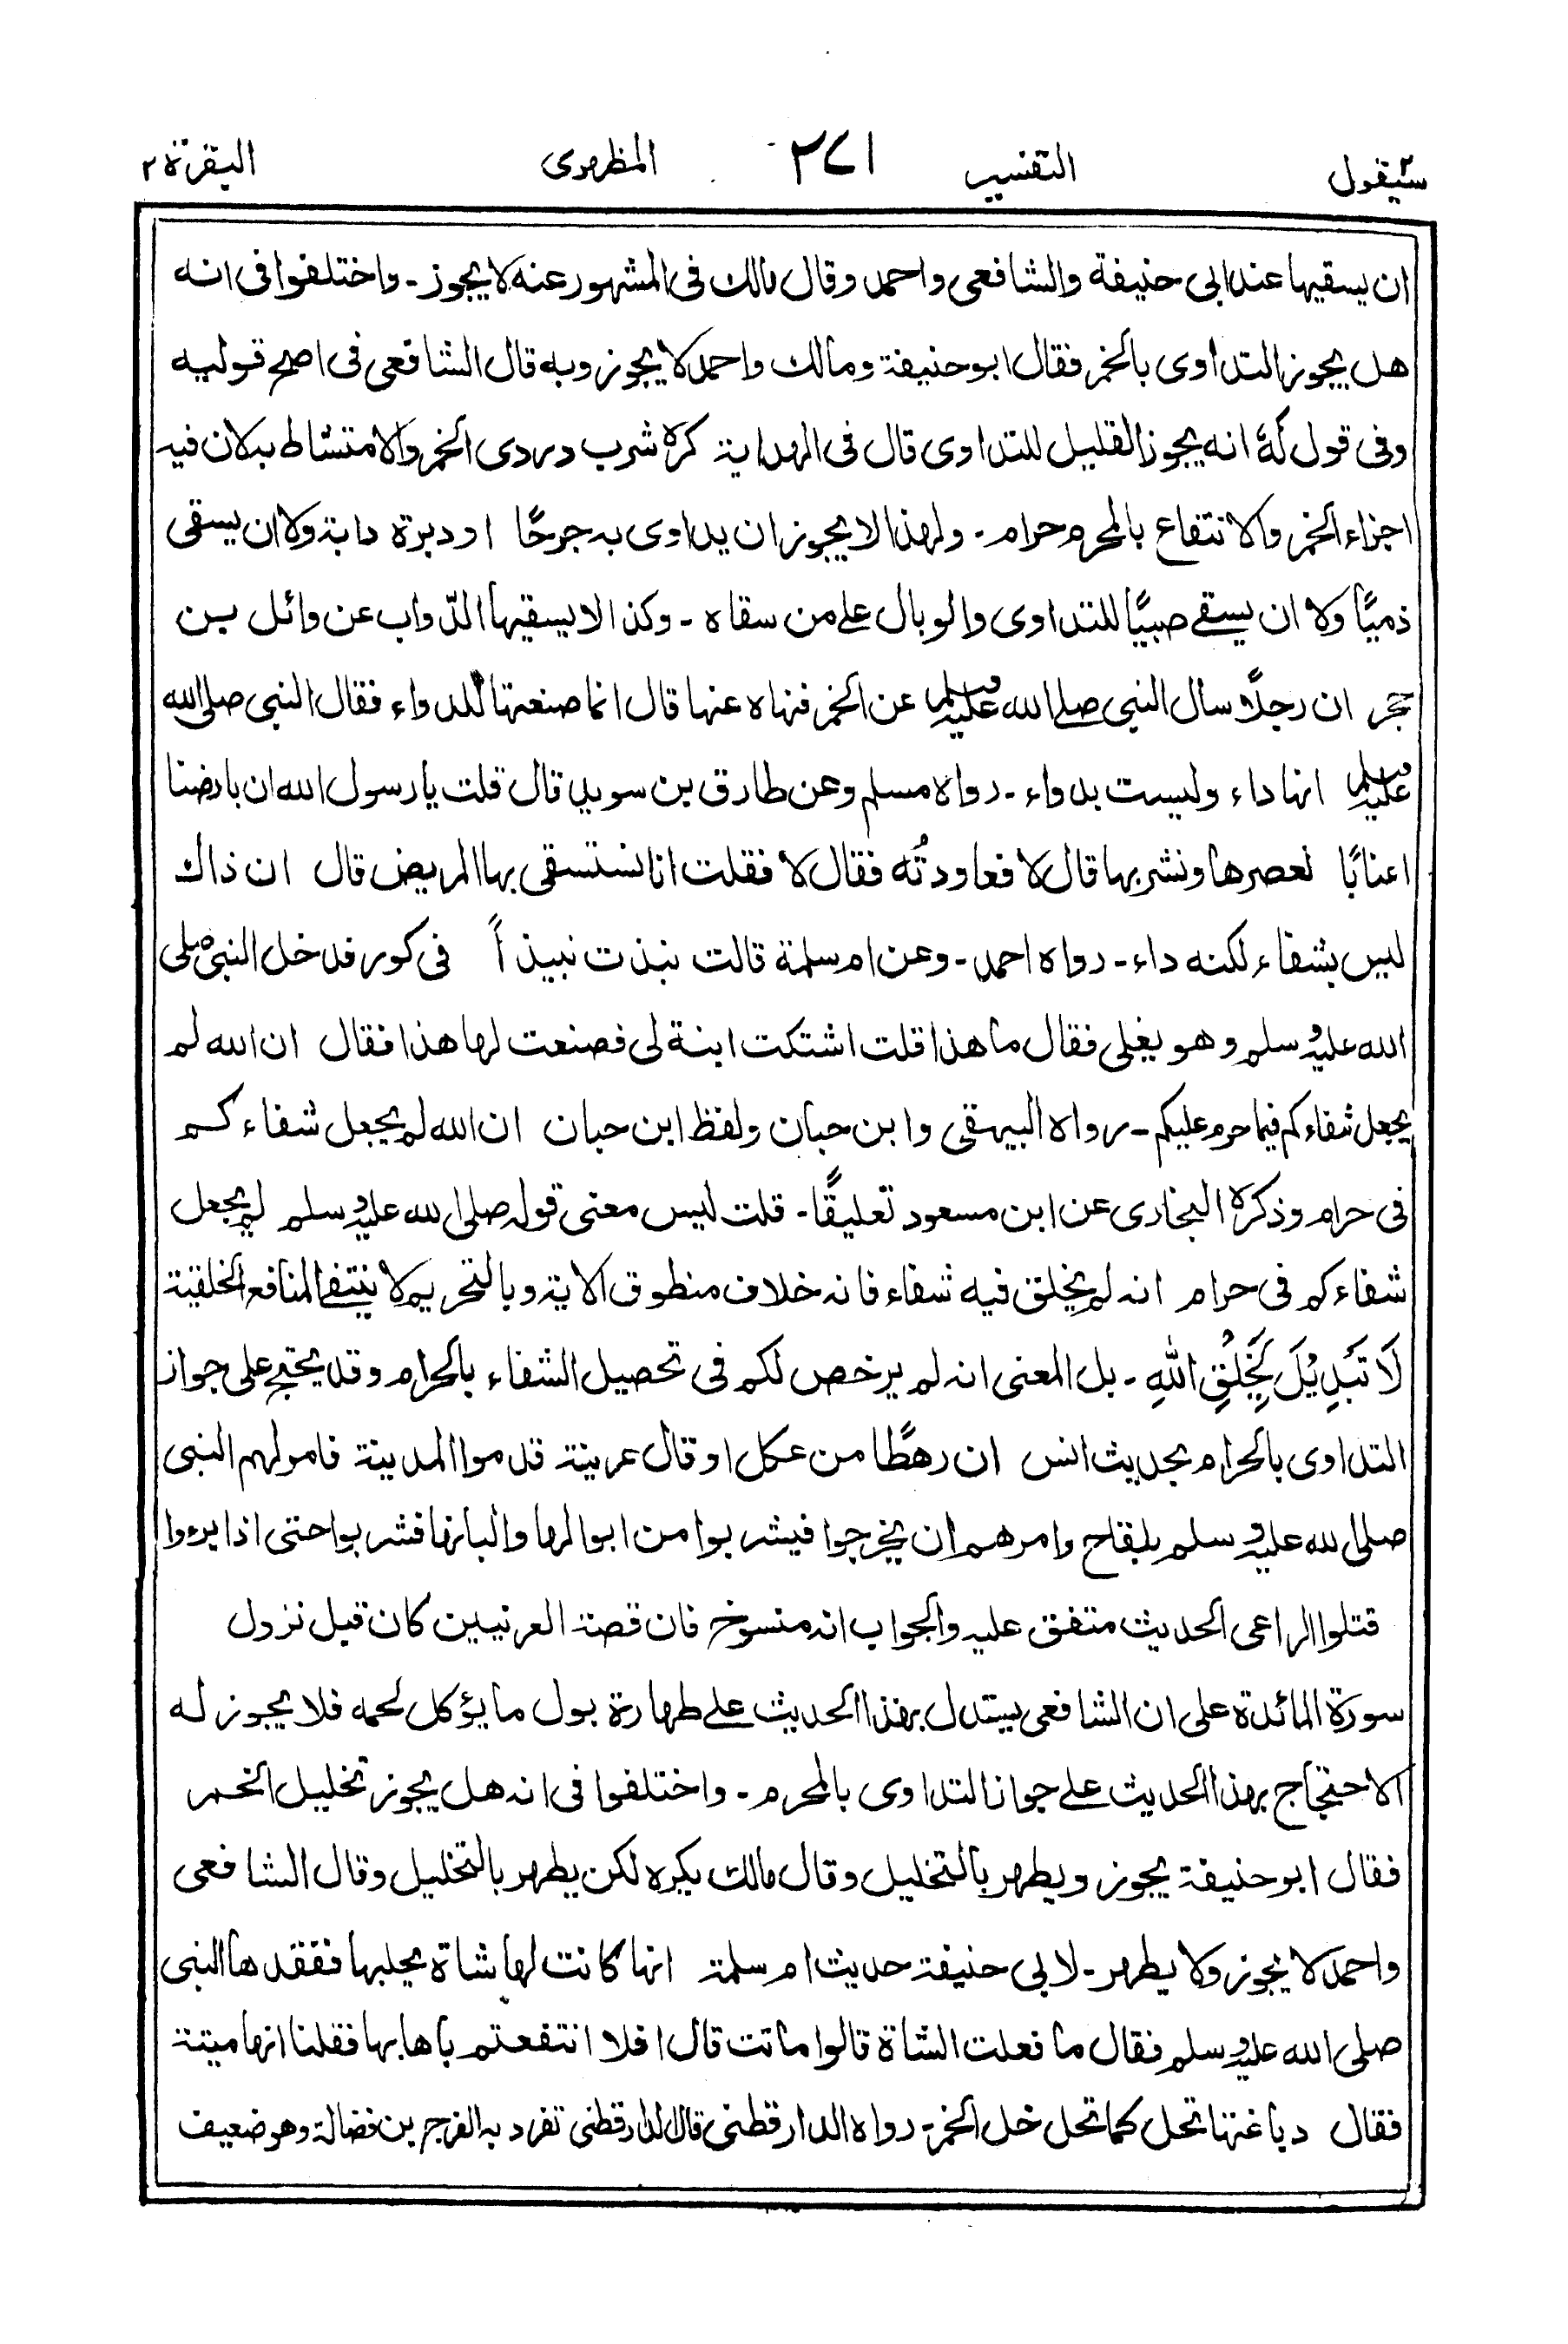 سيقول ٢ التفسير ٢٧١ المظهرى البقرة ٢
ان يسقيها عند ابى حنيفة والشافعى واحمد وقال مالك فى المشهور عنه لا يجوز ـ واختلفوا فى انه
هل يجوز التداوى بالخمر فقال ابو حنيفة ومالك واحمد لا يجوز وبه قال الشافعى فى اصح قوليه
وفى قول له انه يجوز القليل للتداوى قال فى الهداية كره شرب دردى الخمر والامتشاط به لان فيه
اجزاء الخمر والانتفاع بالمحرم حرام ـ ولهذا لا يجوز ان يداوى به جرحًا او دبرة دابة ولا ان يسقى
ذميًّا ولا ان يسقے صبيًّا للتداوى والوبال علے من سقاه ـ وكذا لا يسقيها الدّواب عن وائل بن
حجر ان رجلًا سأل النبى صلے الله عليه وسلم عن الخمر فنهاه عنها قال انما صنعتها للدواء فقال النبى صلى الله
عليه وسلم انها داء وليست بدواء ـ رواه مسلم وعن طارق بن سويد قال قلت يا رسول الله ان بارضنا
اعنابًا نعصرها ونشربها قال لا فعاودتُه فقال لا فقلت انا نستسقى بها المريض قال ان ذاك
ليس بشفاء لكنه داء ـ رواه احمد ـ وعن ام سلمة قالت نبذت نبيذاً فى كور فدخل النبى صلى
الله عليه وسلم وهو يغلى فقال ما هذا قلت اشتكت ابنة لى فصنعت لها هذا فقال ان الله لم
يجعل شفاءكم فيما حرم عليكم ـ رواه البيهقى وابن حبان ولفظ ابن حبان ان الله لم يجعل شفاءكم
فى حرام وذكره البخارى عن ابن مسعود تعليقًا ـ قلت ليس معنى قوله صلى الله عليه وسلم لم يجعل
شفاءكم فى حرام انه لم يخلق فيه شفاء فانه خلاف منطوق الاية وبالتحريم لا ينتفے المنافع الخلقية
لَا تَبْدِيْلَ لِخَلْقِ اللّٰهِ ـ بل المعنى انه لم يرخص لكم فى تحصيل الشفاء بالحرام وقد يحتج على جواز
التداوى بالحرام بحديث انس ان رهطًا من عكل او قال عرينة قدموا المدينة فامر لهم النبى
صلى الله عليه وسلم بلقاح وامرهم ان يخرجوا فيشربوا من ابوالها والبانها فشربوا حتى اذا برءوا
قتلوا الراعى الحديث متفق عليه والجواب انه منسوخ فان قصة العرنيين كان قبل نزول
سورة المائدة على ان الشافعى يستدل بهذا الحديث علے طهارة بول ما يؤكل لحمه فلا يجوز له
الاحتجاج بهذا الحديث علے جواز التداوى بالمحرم ـ واختلفوا فى انه هل يجوز تخليل الخمر
فقال ابو حنيفة يجوز ويطهر بالتخليل وقال مالك يكره لكن يطهر بالتخليل وقال الشافعى
واحمد لا يجوز ولا يطهر ـ لابى حنيفة حديث ام سلمة انها كانت لها شاة يحلبها ففقدها النبى
صلى الله عليه وسلم فقال ما فعلت الشاة قالوا ماتت قال افلا انتفعتم باهابها فقلنا انها ميتة
فقال دباغتها تحل كما تحل خل الخمر ـ رواه الدارقطنى قال الدارقطنى تفرد به الفرج بن فضالة وهو ضعيف